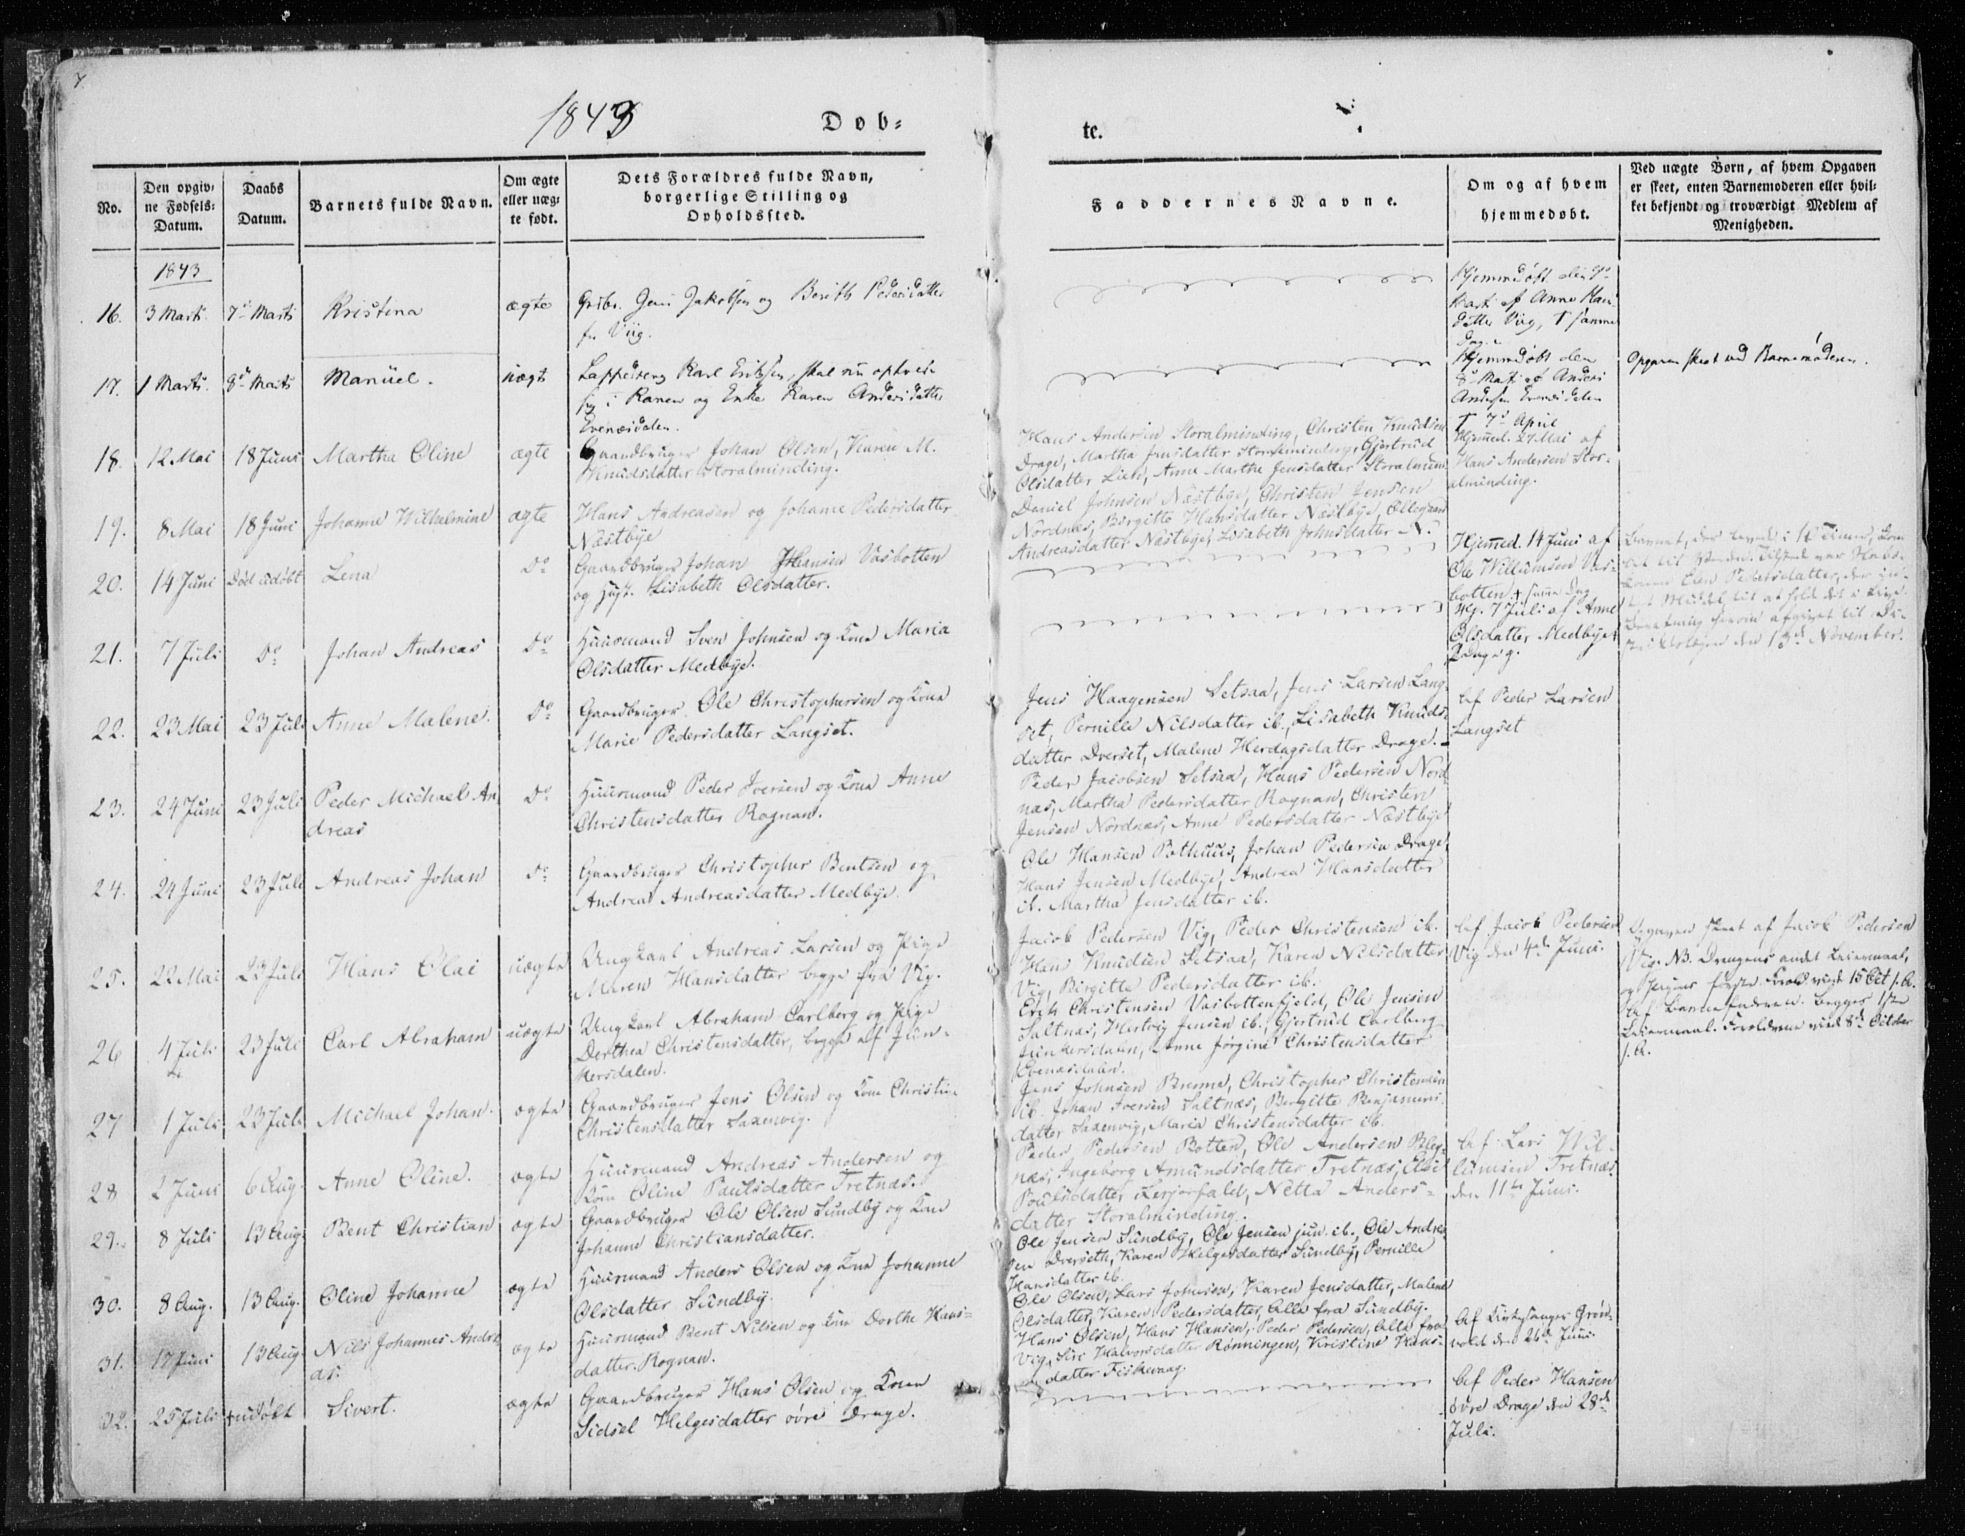 1843
Døb-
te.
No.
Den opgiv-
ne Fødsels-
Datum.
Daabs
Datum.
Barnets fulde Navn.
Om ægte
eller uæg-
te født.
Dets Forældres fulde Navn,
borgerlige Stilling og
Opholdssted.
Faddernes Navne.
Om og af hvem
hjemmedøbt.
Ved uægte Børn, af hvem Opgaven
er skeet, enten Barnemoderen eller hvil-
ket bekjendt og troværdigt Medlem af
Menigheden.
1843
16. 3 Marts. 7de Marts Kristina ægte Grbr. Jens Jakobsen og Berith Pedersdatter
fr. Viig.
Hjemmedøbt den
Marts af Anna
datter Viig, † samme
Dag.
17. 1 Marts. 8de Marts Manüel. uægte Karl Eriksen, skal nu opholde
sig i Ranen og Enke Karen Andersdatter
Evenesdalen.
Hjemmedøbt den
8de Marts af Anders
Andersen Evenesdalen
† 7de April
Opgaven skeet ved Barnemoderen.
18. 12. Mai 18 Juni Martha Oline ægte Gaardbruger Johan Olsen, Karen M.
Knudsdatter Storalminding.
Hans Andersen Storalminding, Christen Knudsen
Drage, Martha Jensdatter Storalminding, Gjertrud
Olsdatter Lien, Anne Martha Jensdatter Storalmind
Hjemmed. 27 Mai af
Hans Andersen Stor-
alminding.
19. 8 Mai 18 Juni Johanne Wilhelmine ægte Hans Andreasen og Johanne Pedersdatter
Næstbye
Daniel Johnsen Næstbye, Christen Jensen
Nordnæs, Birgitte Hansdatter Næstbye, Ollegaard
Andreasdatter Næstbye, Lisabeth Johnsdatter N.
20. 14 Juni Død udøbt Lena Do Gaardbruger Johan Hansen Vasbotten
og Hust. Lisabeth Olsdatter.
Hjemmed. 14 Juni af
Ole Willumsen Vas-
botten † samme Dag
Barnet, der levede i 12 Timer, kom
Ellen Pedersdatter, der
Middel til at holde det i Live.
afgivet til
den 13de November.
21. 7 Juli Do Johan Andreas Do Huusmand Sven Johnsen og Kone Maria
Olsdatter Medbye.
Hj. 7 Juli af Anne
Olsdatter Medbye †
22. 23 Mai 23 Juli Anne Malene. Do Gaardbruger Ole Christophersen og Kone
Marie Pedersdatter Langset.
Jens Haagensen Setsaa, Jens Larsen Lang-
set, Pernille Nilsdatter ib., Lisabeth Knuds-
datter Dverset, Malene Herdagsdatter Drage.
Af Peder Larsen
Langset
23. 24 Juni 23 Juli Peder Michael An-
dreas Do Huusmand Peder Iversen og Kone Anne
Christensdatter Rognan.
Peder Jacobsen Setsaa, Hans Pedersen Nord-
næs, Martha Pedersdatter Rognan, Christen
Jensen Nordnæs, Anne Pedersdatter Næstbye
24. 24 Juni 23 Juli Andreas Johan Do Gaardbruger Christopher Bentsen og
Andrea Andreasdatter Medbye.
Ole Hansen Pothuus, Johan Pedersen Drage,
Hans Jensen Medbye, Andrea Hansdatter
ib. Martha Jensdatter ib.
25. 22 Mai 23 Juli Hans Olai uægte Ungkarl Andreas Larsen og Pige
Maren Hansdatter begge fra Vig.
Jacob Pedersen Vig, Peder Christensen ib.
Hans Knudsen Setsaa, Karen Nilsdatter
Vig, Birgitte Pedersdatter ib.
Af Jacob Pedersen
Vig den 4de Juni
Opgaven skeet af Jacob Pedersen
Vig. NB. Drengens andet Leiermaal,
og Pigens første. Forældr. viede 15 Oct. s. A.
26 4 Juli 23 Juli Carl Abraham uægte Ungkarl Abraham Carlberg og Pige
Dorthea Christensdatter, begge af Jun-
kersdalen.
Erik Christensen Vasbottenfjeld, Ole Jensen
Saltnæs, Hertvig Jensen ib., Gjertrud Carlberg
Junkersdalen, Anne Jørgine Christensdatter
Evenæsdalen.
Af Barnefaderen. Begges 1ste
Leiermaal. Forældrene viede 8de October
s. A.
27 1 Juli 23 Juli Michael Johan. ægte Gaardbruger Jens Olsen og Kone Christine
Christensdatter Saxenvig.
Jens Johnsen Brenne, Christopher Christensen
ib. Johan Iversen Saltnæs, Birgitte Benjamins-
datter Saxenvig, Maria Christensdatter ib.
28 2 Juni 6 Aug. Anne Oline. ægte Huusmand Andreas Andersen og
Kone Oline Paulsdatter Tretnæs.
Peder Pedersen Botten, Ole Andersen Bleg-
næs, Ingeborg Amundsdatter Tretnæs, Else
Poulsdatter Lerjorfald, Netta Anders-
datter Storalminding.
Af Lars Wil-
lumsen Tretnæs
den 11te Juni.
29. 8 Juli 13 Aug. Bent Christian ægte Gaardbruger Ole Olsen Sundby og Kone
Johanne Christiansdatter.
Ole Jensen Sundby, Ole Jensen jun. ib., Ole Andre-
sen Dverseth, Karen Helgesdatter Sundby, Pernille
Hansdatter ib.
30. 8 Aug. 13 Aug. Oline Johanne ægte Huusmand Anders Olsen og Kone Johanne
Olsdatter Sundby.
Ole Olsen, Lars Johnsen, Karen Jensdatter, Malene
Olsdatter, Karen Pedersdatter, Alle fra Sundby.
31. 17 Juni 13 Aug. Nils Johannes Andre-
as. ægte Huusmand Bent Nilsen og Kone Dorthe Hans-
datter Rognan.
Hans Olsen, Hans Hansen, Peder Pedersen, Alle fra
Vig, Siri Halvorsdatter Rønningen, Kristine Hans-
datter Fiskevaag.
Af Kirkesanger Grøn-
vold den 26de Juni.
32. 25 Juli † udøbt Sivert. ægte Gaardbruger Hans Olsen og Kone
Sidsel Helgesdatter øvre Drage.
Af Peder Hansen
øvre Drage den 28de
Juli.